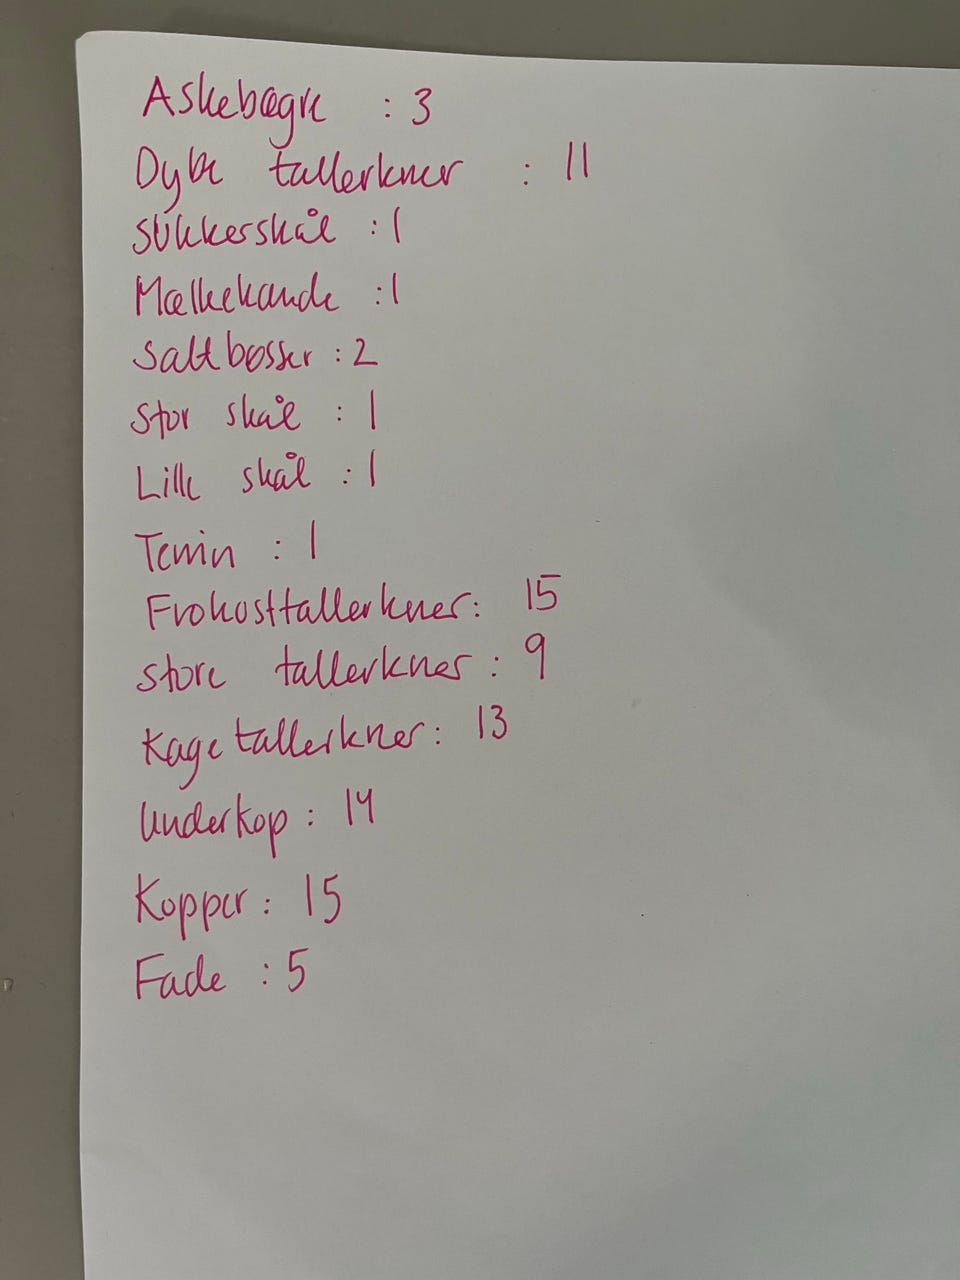 Askebægre : 3
Dybe tallerkner : 11
Sukkerskål : 1
Mælkekande : 1
Saltbøsser : 2
Stor skål : 1
Lille skål : 1
Terrin : 1
Frokosttallerkner : 15
Store tallerkner : 9
Kagetallerkner : 13
Underkop : 14
Kopper : 15
Fade : 5